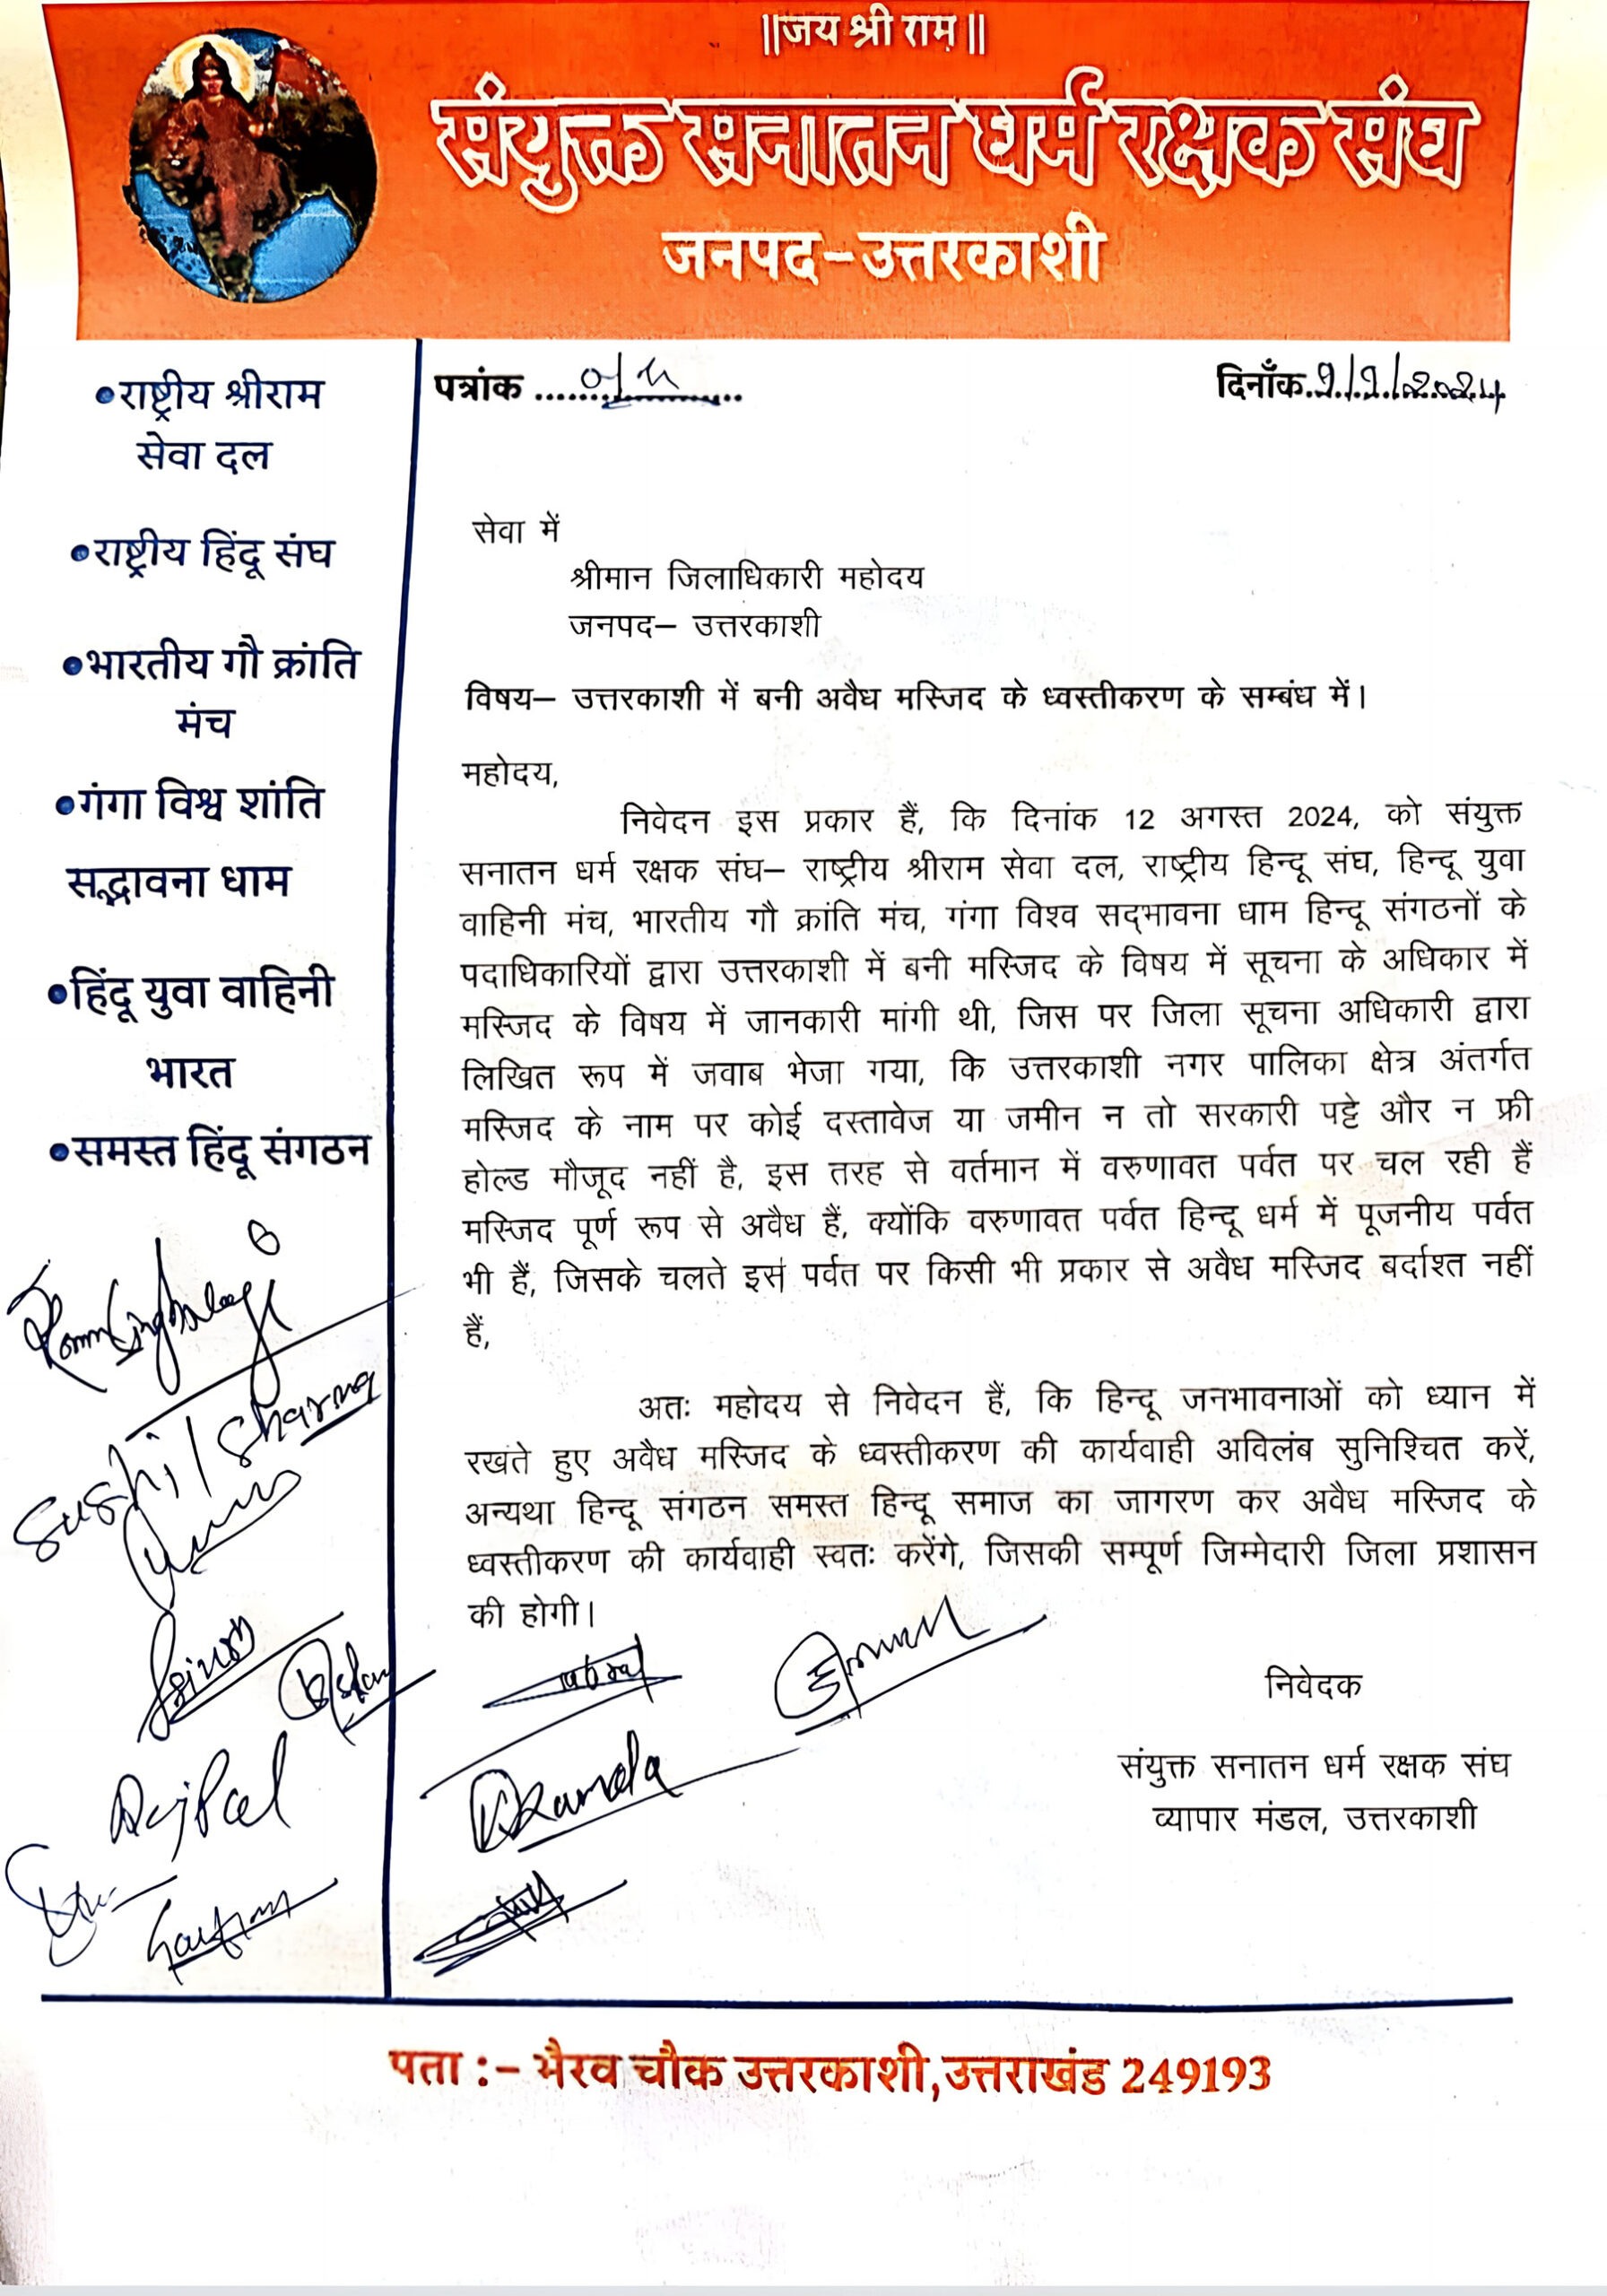 ||जय श्री राम||
संयुक्त सनातन धर्म रक्षक संघ
जनपद-उत्तरकाशी
पत्रांक
दिनाँक 9/9/2024
•राष्ट्रीय श्रीराम
सेवा दल
•राष्ट्रीय हिंदू संघ
•भारतीय गौ क्रांति
मंच
•गंगा विश्व शांति
सद्भावना धाम
•हिंदू युवा वाहिनी
भारत
•समस्त हिंदू संगठन
सेवा में
श्रीमान जिलाधिकारी महोदय
जनपद– उत्तरकाशी
विषय– उत्तरकाशी में बनी अवैध मस्जिद के ध्वस्तीकरण के सम्बंध में।
महोदय,
निवेदन इस प्रकार हैं, कि दिनांक 12 अगस्त 2024, को संयुक्त
सनातन धर्म रक्षक संघ– राष्ट्रीय श्रीराम सेवा दल, राष्ट्रीय हिन्दू संघ, हिन्दू युवा
वाहिनी मंच, भारतीय गौ क्रांति मंच, गंगा विश्व सद्‌भावना धाम हिन्दू संगठनों के
पदाधिकारियों द्वारा उत्तरकाशी में बनी मस्जिद के विषय में सूचना के अधिकार में
मस्जिद के विषय में जानकारी मांगी थी, जिस पर जिला सूचना अधिकारी द्वारा
लिखित रूप में जवाब भेजा गया, कि उत्तरकाशी नगर पालिका क्षेत्र अंतर्गत
मस्जिद के नाम पर कोई दस्तावेज या जमीन न तो सरकारी पट्टे और न फ्री
होल्ड मौजूद नहीं है, इस तरह से वर्तमान में वरुणावत पर्वत पर चल रही हैं
मस्जिद पूर्ण रूप से अवैध हैं, क्योंकि वरुणावत पर्वत हिन्दू धर्म में पूजनीय पर्वत
भी हैं, जिसके चलते इस पर्वत पर किसी भी प्रकार से अवैध मस्जिद बर्दाश्त नहीं
हैं,
अतः महोदय से निवेदन हैं, कि हिन्दू जनभावनाओं को ध्यान में
रखते हुए अवैध मस्जिद के ध्वस्तीकरण की कार्यवाही अविलंब सुनिश्चित करें,
अन्यथा हिन्दू संगठन समस्त हिन्दू समाज का जागरण कर अवैध मस्जिद के
ध्वस्तीकरण की कार्यवाही स्वतः करेंगे, जिसकी सम्पूर्ण जिम्मेदारी जिला प्रशासन
की होगी।
Sushil Sharma
निवेदक
संयुक्त सनातन धर्म रक्षक संघ
व्यापार मंडल, उत्तरकाशी
पता :– भैरव चौक उत्तरकाशी,उत्तराखंड 249193